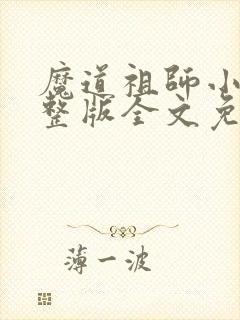 魔道祖師小
整版全文免
薄一波